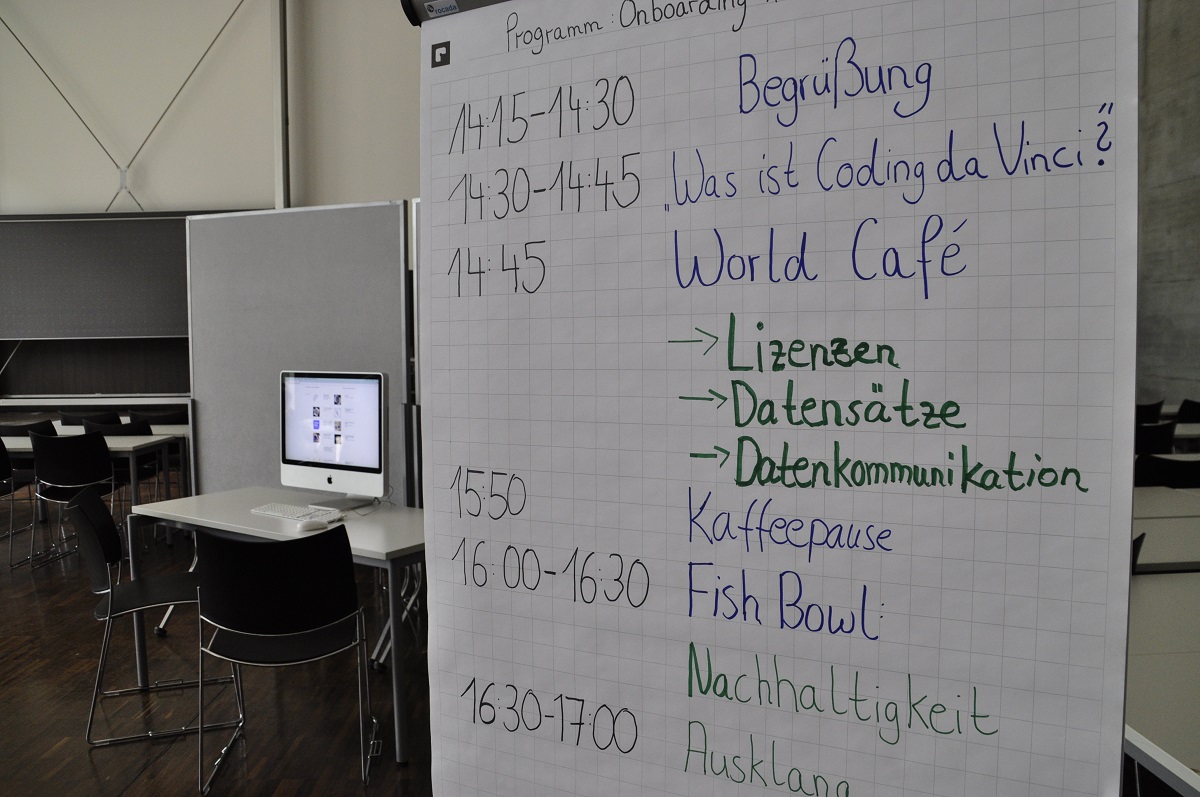 rocada
Programm: Onboarding
14:15-14:30 Begrüßung
14:30-14:45 „Was ist Coding da Vinci?“
14:45 World Café
→ Lizenzen
→ Datensätze
→ Datenkommunikation
15:50 Kaffeepause
16:00-16:30 Fish Bowl:
Nachhaltigkeit
16:30-17:00 Ausklang